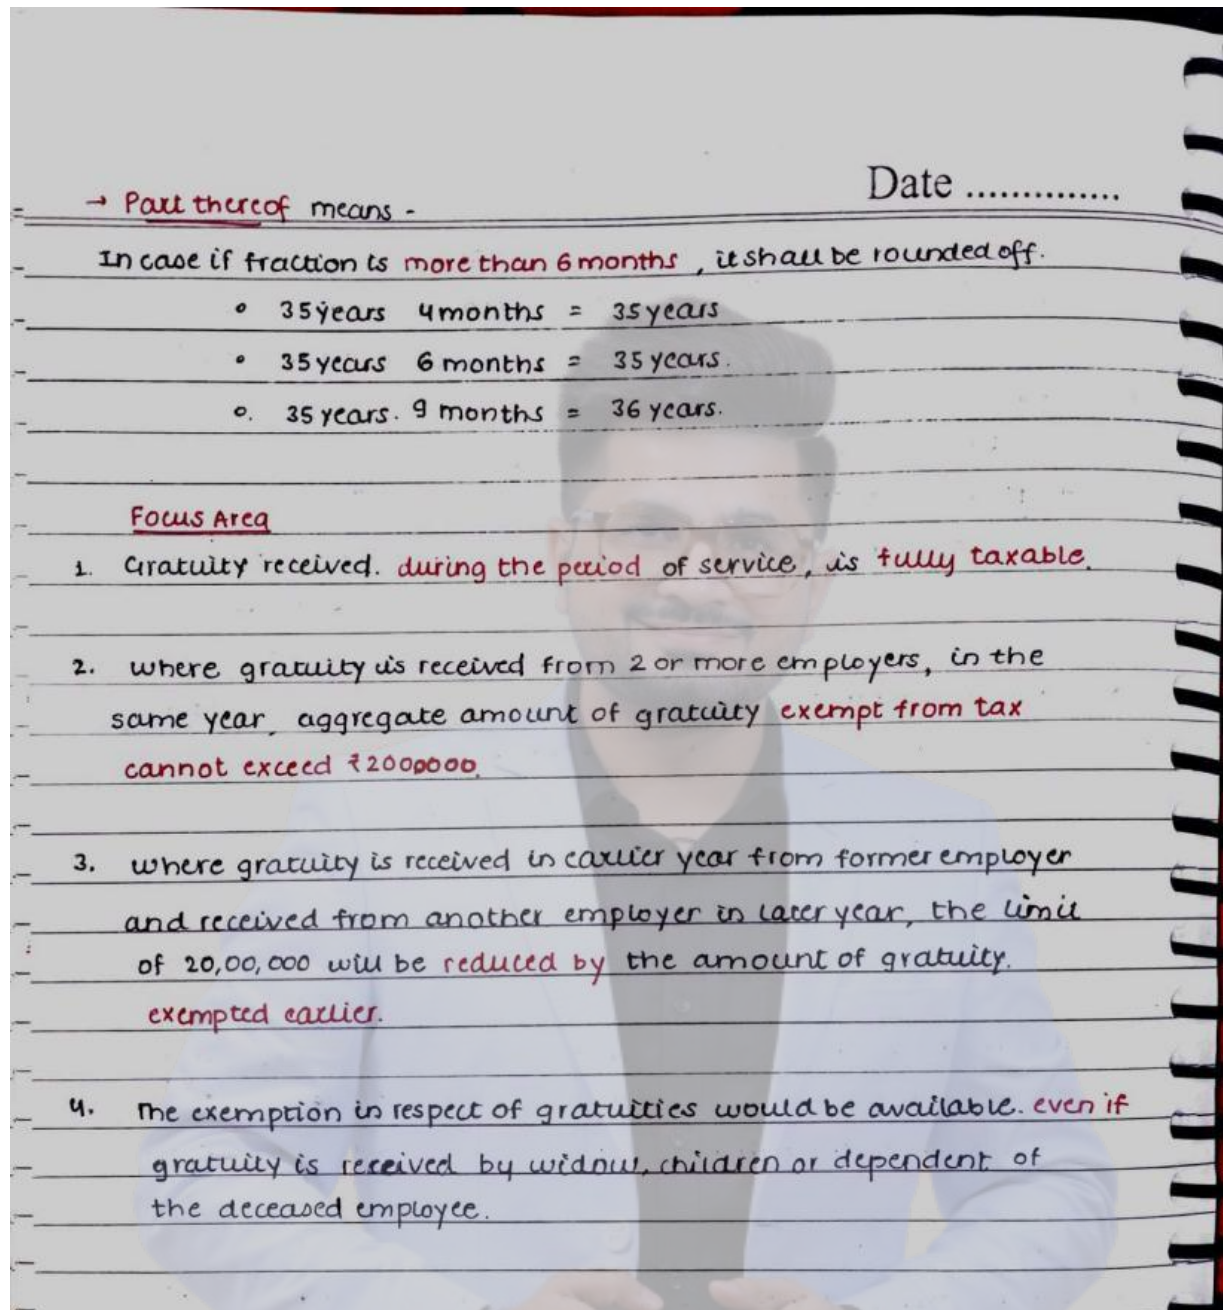 Date ..............
→ Part thereof means -
In case if fraction is more than 6 months , it shall be rounded off.
° 35 years 4 months = 35 years
° 35 years 6 months = 35 years.
o. 35 years. 9 months = 36 years.
Focus Area
1. Gratuity received. during the period of service, is fully taxable.
2. where gratuity is received from 2 or more employers, in the
same year, aggregate amount of gratuity exempt from tax
cannot exceed ₹2000000.
3. where gratuity is received in earlier year from former employer
and received from another employer in later year, the limit
of 20,00,000 will be reduced by the amount of gratuity.
exempted earlier.
4. The exemption in respect of gratuities would be available. even if
gratuity is received by widow, children or dependent of
the deceased employee.